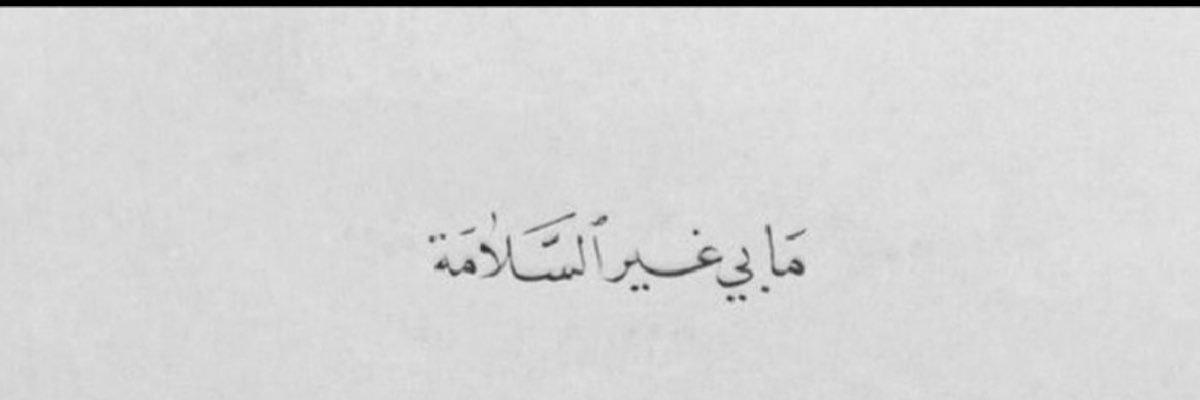 مَا بي غير ٱلسَّلاٰمَة